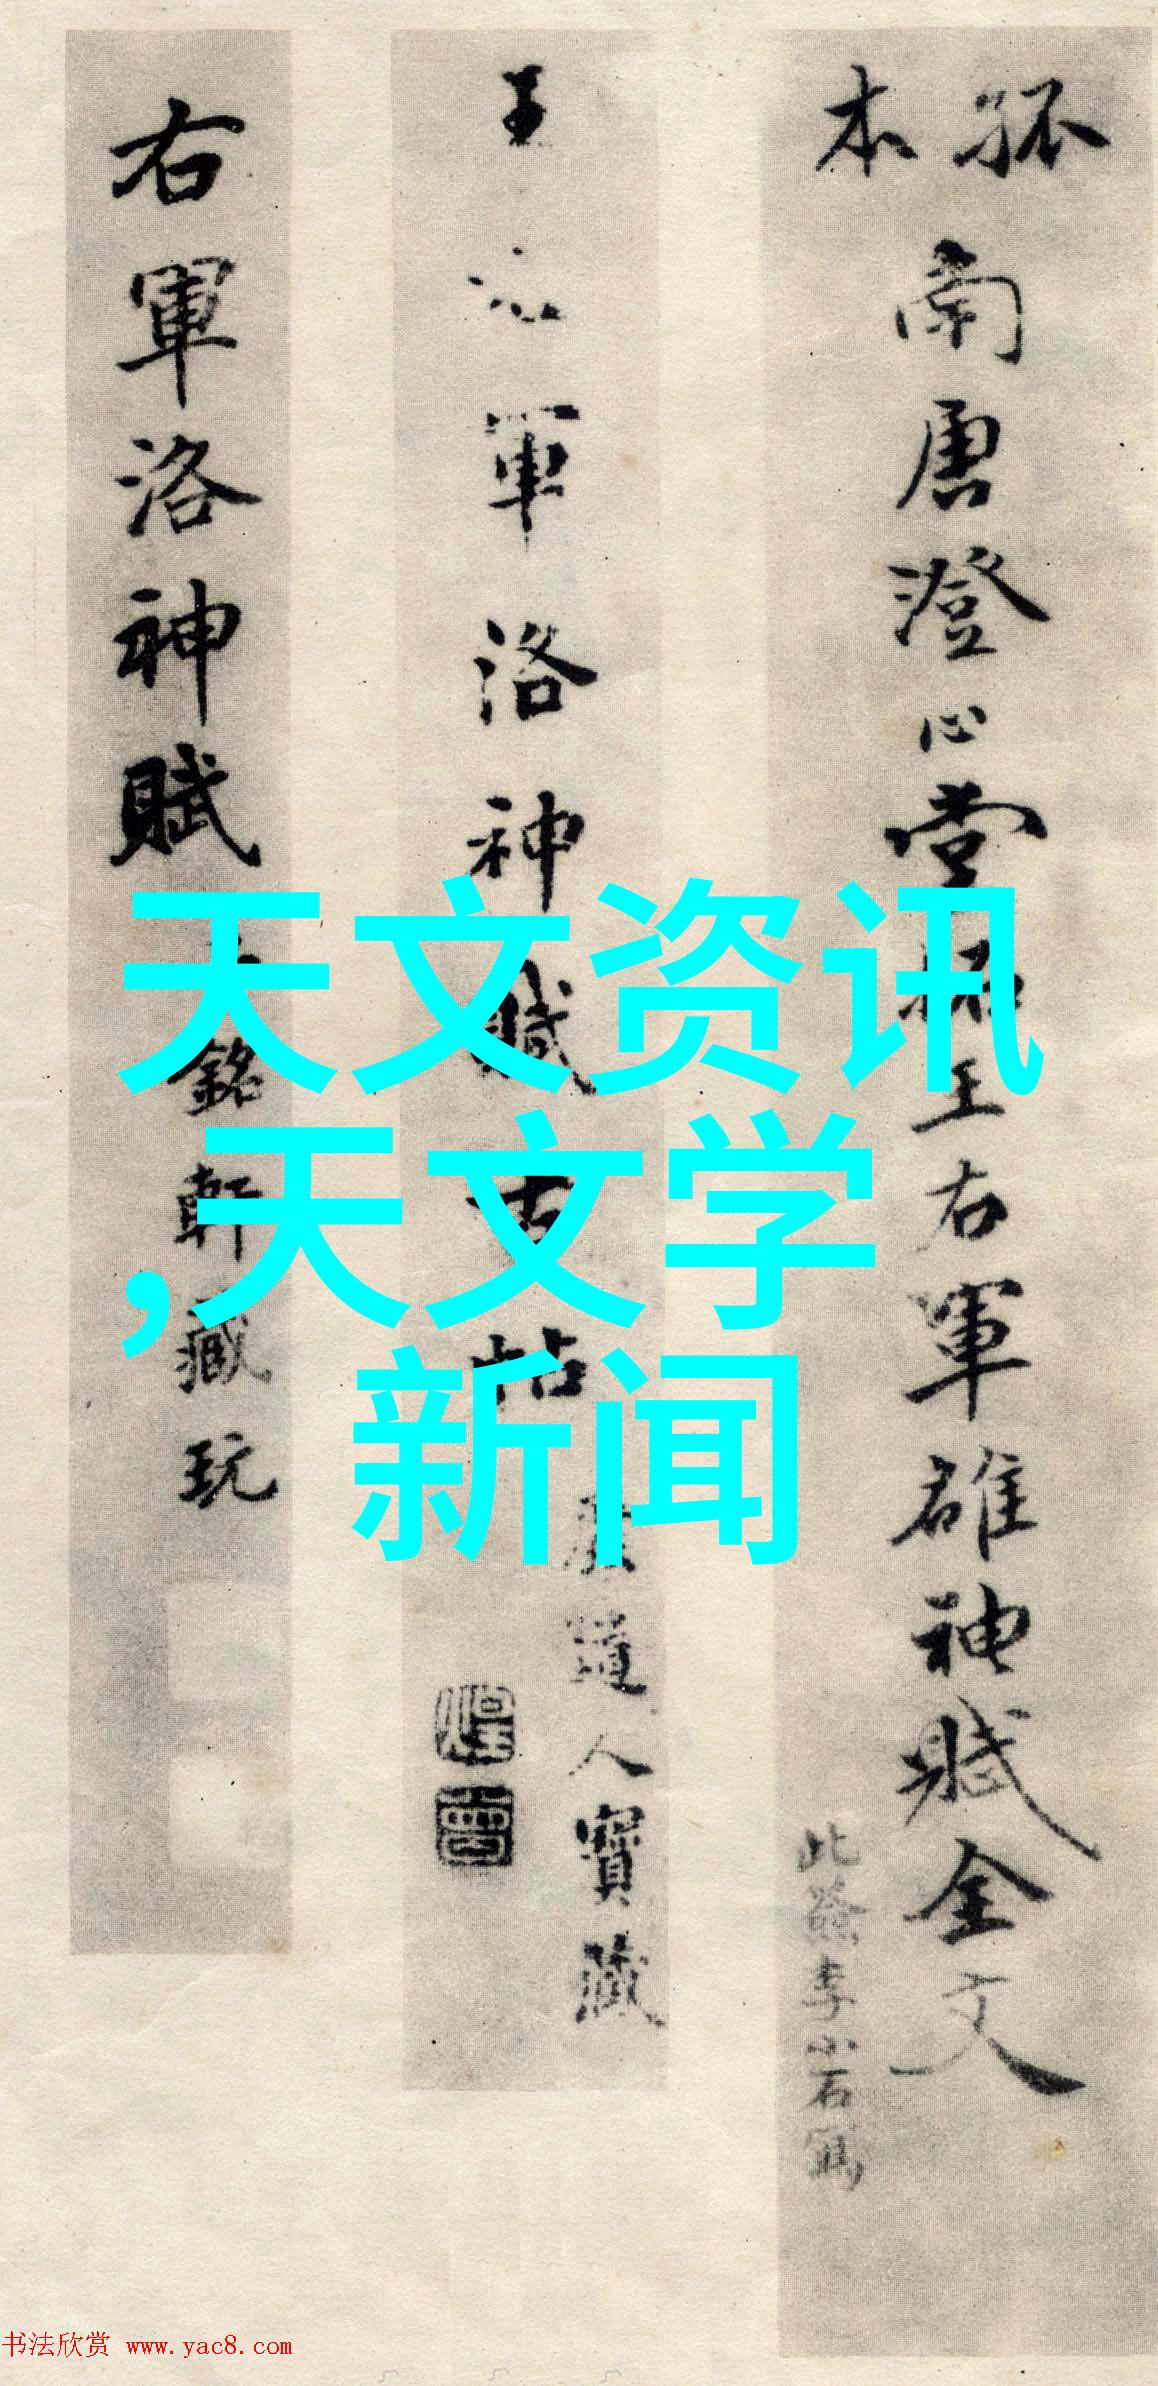 孤本
南唐澄心堂拓王右軍雒神賦全文
此籤李小石寫
軍洛神賦
帖
道人寶藏
右軍洛神賦
銘軒藏玩
天文资讯
,天文学
新闻
书法欣赏 www.yac8.com